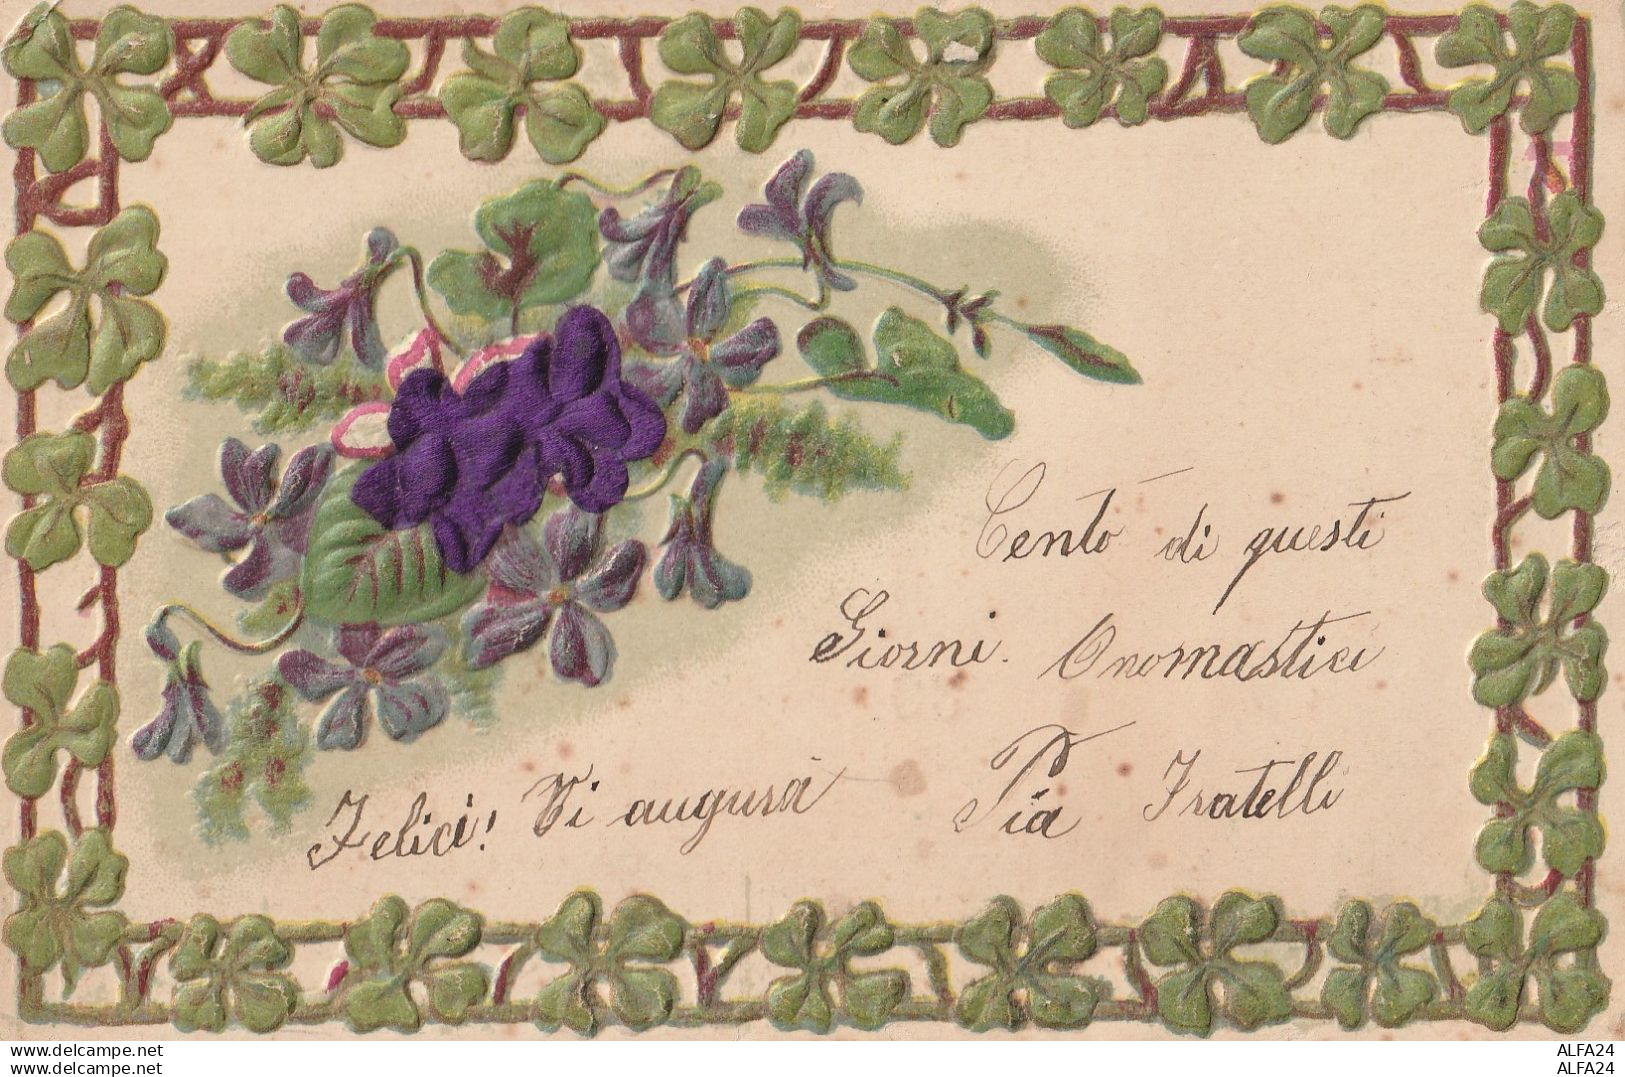 Cento di questi
Giorni. Onomastici
Felici! Vi augura Pia Fratelli
www.delcampe.net ALFA24
www.delcampe.net ALFA24